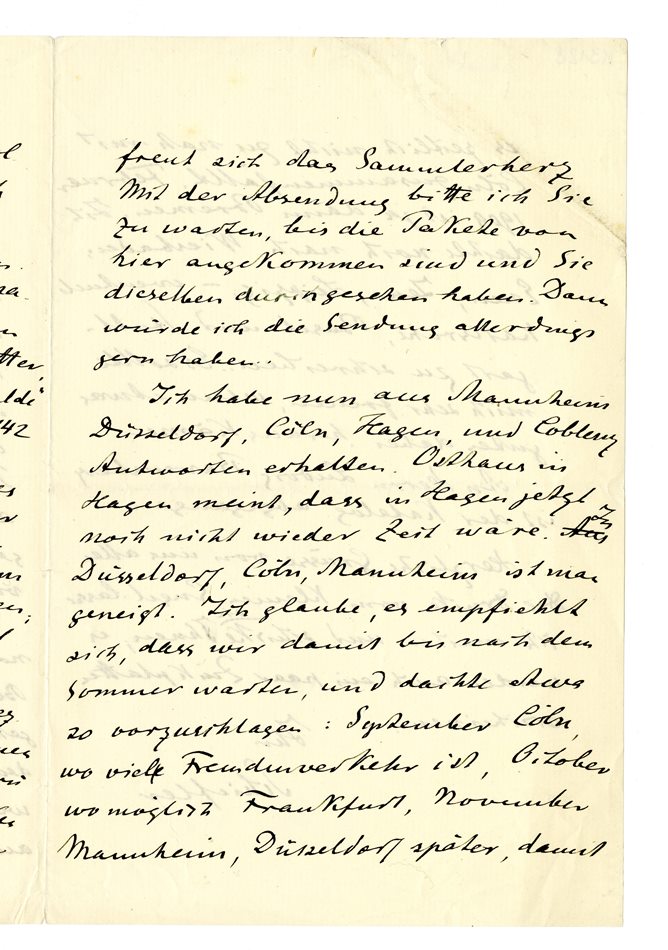 freut sich das Sammlerherz
Mit der Absendung bitte ich Sie
zu warten, bis die Pakete von
hier angekommen sind und Sie
dieselben durchgesehen haben. Dann
würde ich die Sendung allerdings
gern haben.
Ich habe nun aus Mannheim
Düsseldorf, Cöln, Hagen, und Coblenz
Antworten erhalten. Osthaus in
Hagen meint, dass in Hagen jetzt
noch nicht wieder Zeit wäre. Aus In
Düsseldorf, Cöln, Mannheim ist man
geneigt. Ich glaube, es empfiehlt
sich, dass wir damit bis nach dem
Sommer warten, und dachte etwa
so vorzuschlagen: September Cöln,
wo viele Fremdenverkehr ist, October
womöglich Frankfurt, November
Mannheim, Düsseldorf später, damit
tter,
ldi
142